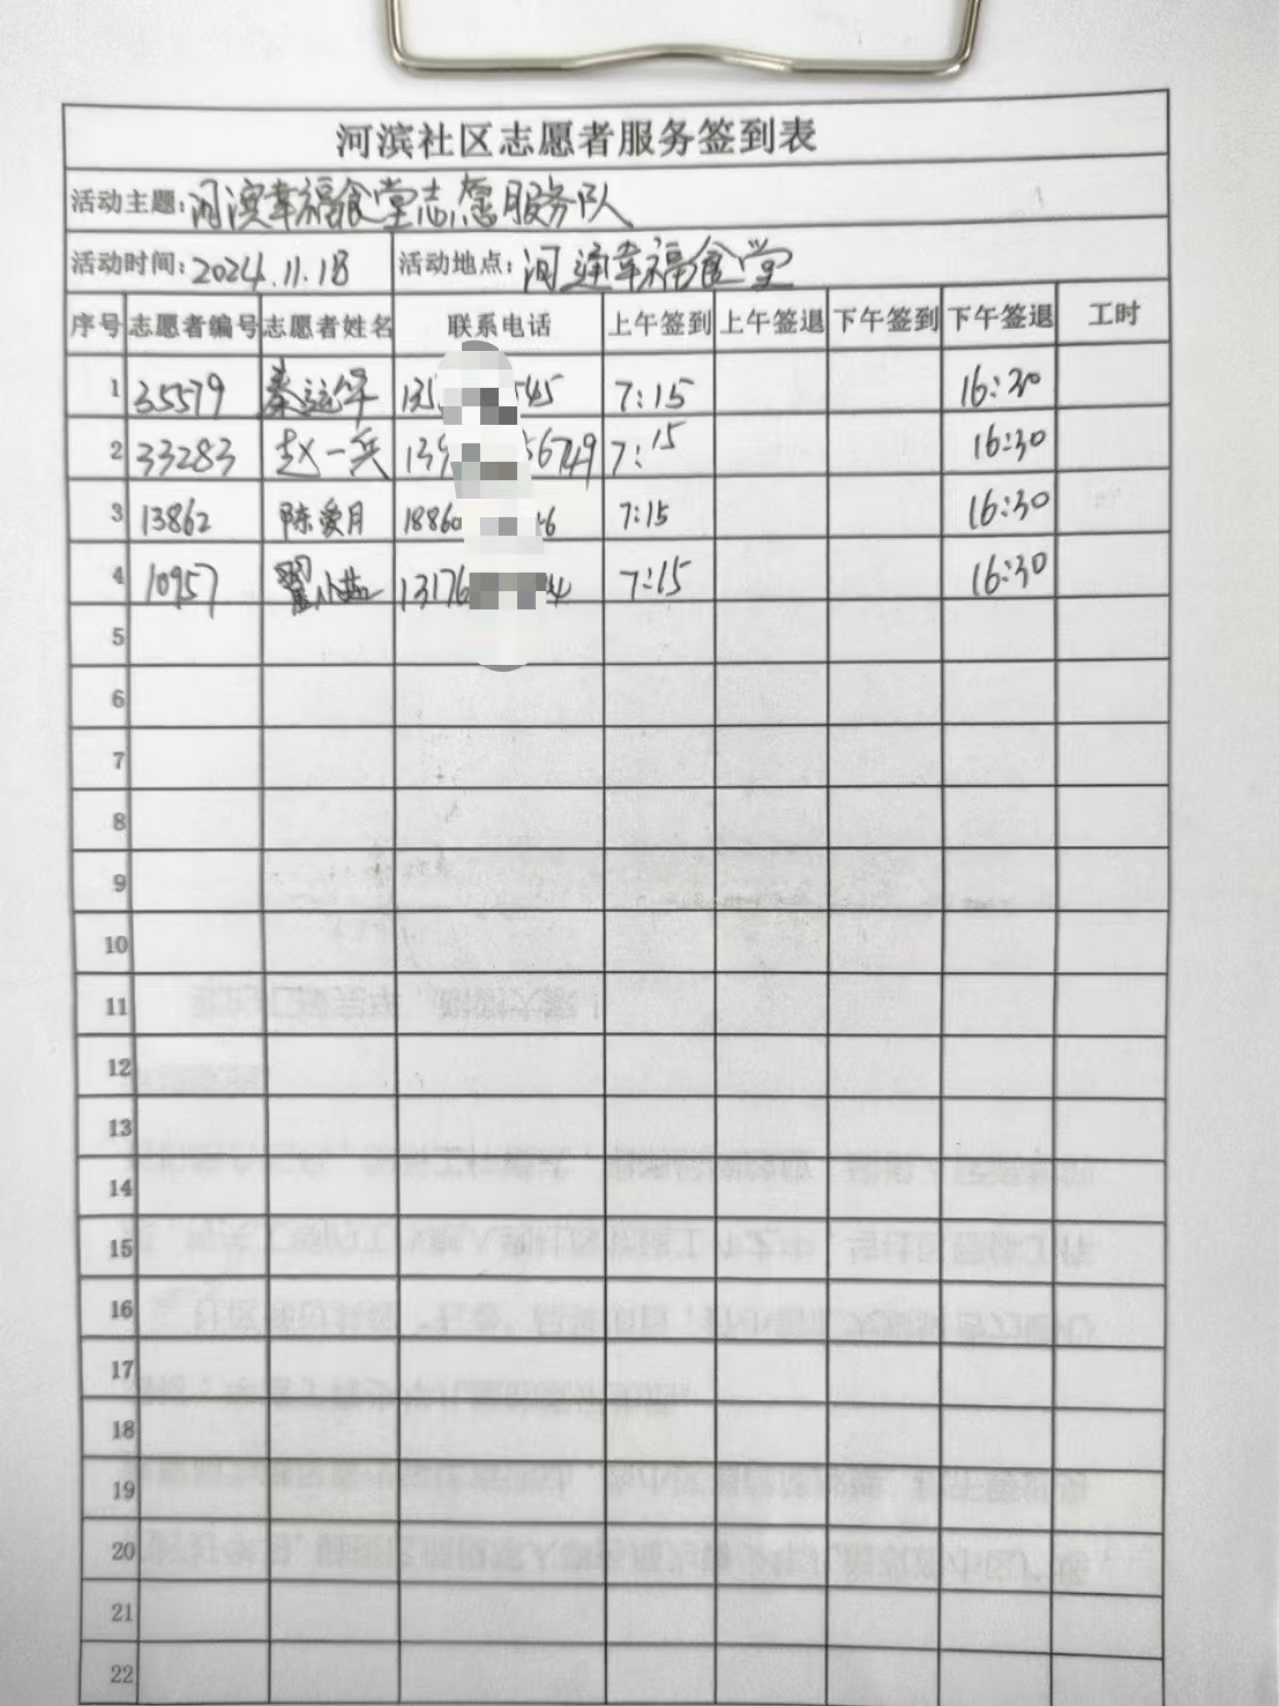 河滨社区志愿者服务签到表
活动主题:河滨幸福食堂志愿服务队
活动时间:2024.11.18 活动地点:河滨幸福食堂
序号 志愿者编号 志愿者姓名 联系电话 上午签到 上午签退 下午签到 下午签退 工时
1 35579 秦运华 135 545 7:15 16:30
2 33283 赵一兵 139 56749 7:15 16:30
3 13862 陈爱月 18860 6 7:15 16:30
4 10957 翟小茹 13176 4 7:15 16:30
5
6
7
8
9
10
11
12
13
14
15
16
17
18
19
20
21
22